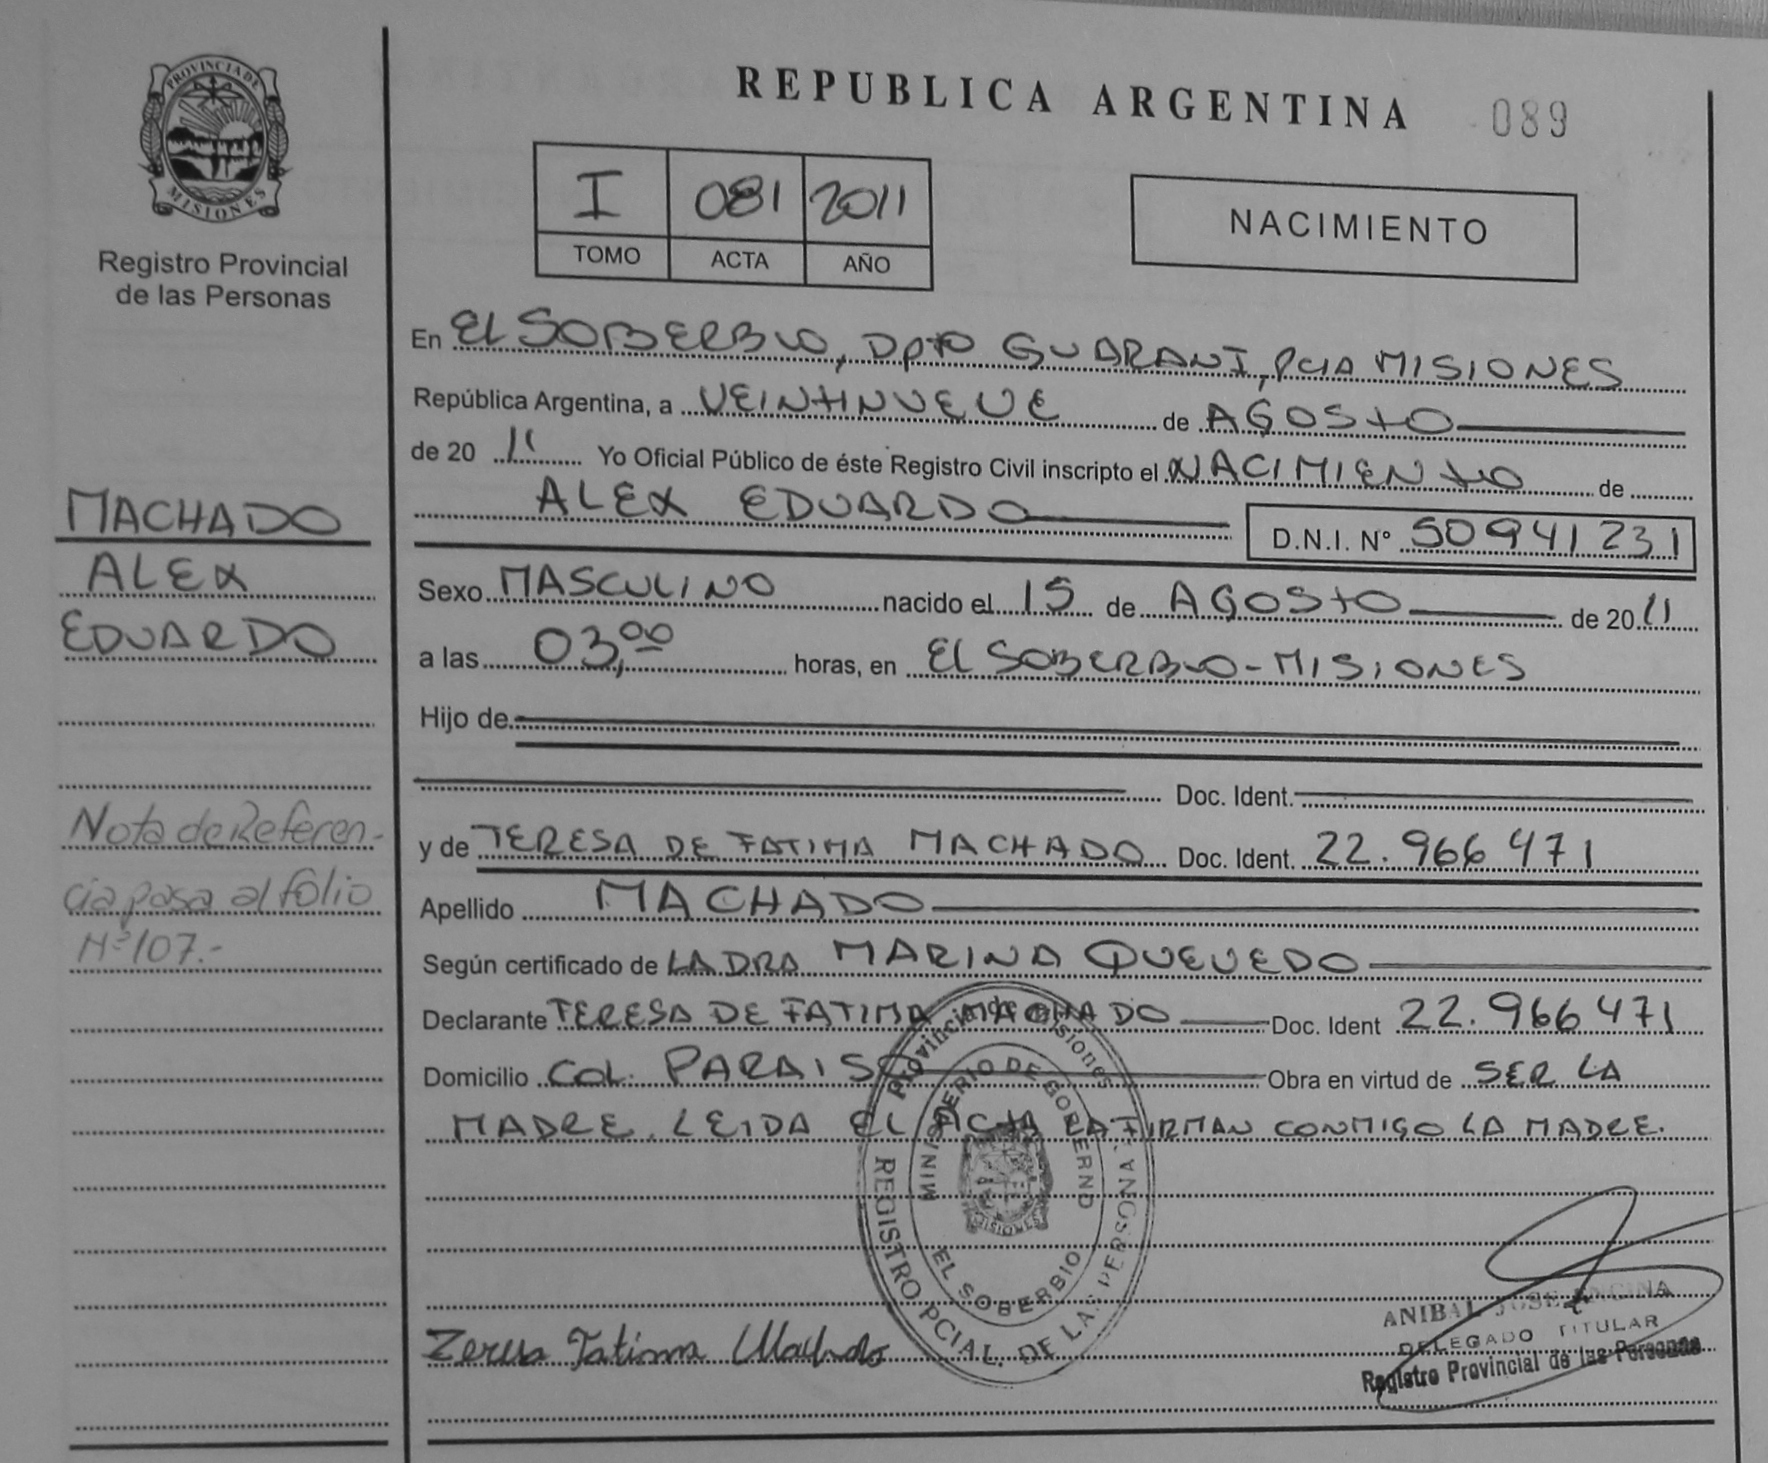 PROVINCIA DE
MISIONES
Registro Provincial
de las Personas
MACHADO
ALEX
EDUARDO
Nota de Referen-
cia pasa al folio
Nº 107.-
REPUBLICA ARGENTINA 089
I 081 2011
TOMO ACTA AÑO
NACIMIENTO
En EL SOBERBIO, DPTO GUARANI, PCIA MISIONES
República Argentina, a VEINTINUEVE de AGOSTO
de 20 11 Yo Oficial Público de éste Registro Civil inscripto el NACIMIENTO de
ALEX EDUARDO D.N.I. N° 50941231
Sexo MASCULINO nacido el 15 de AGOSTO de 2011
a las 03,00 horas, en EL SOBERBIO - MISIONES
Hijo de
Doc. Ident.
y de TERESA DE FATIMA MACHADO Doc. Ident. 22.966471
Apellido MACHADO
Según certificado de LA DRA MARINA QUEVEDO
Declarante TERESA DE FATIMA MACHADO Doc. Ident 22.966471
Domicilio COL. PARAISO Obra en virtud de SER LA
MADRE. LEIDA EL ACTA LA FIRMAN CONMIGO LA MADRE.
Provincia de Misiones
MINISTERIO DE GOBIERNO
MISIONES
EL SOBERBIO
REGISTRO PCIAL. DE LAS PERSONAS
Teresa Fatima Machado
ANIBAL JOSE ENCINA
DELEGADO TITULAR
Registro Provincial de las Personas